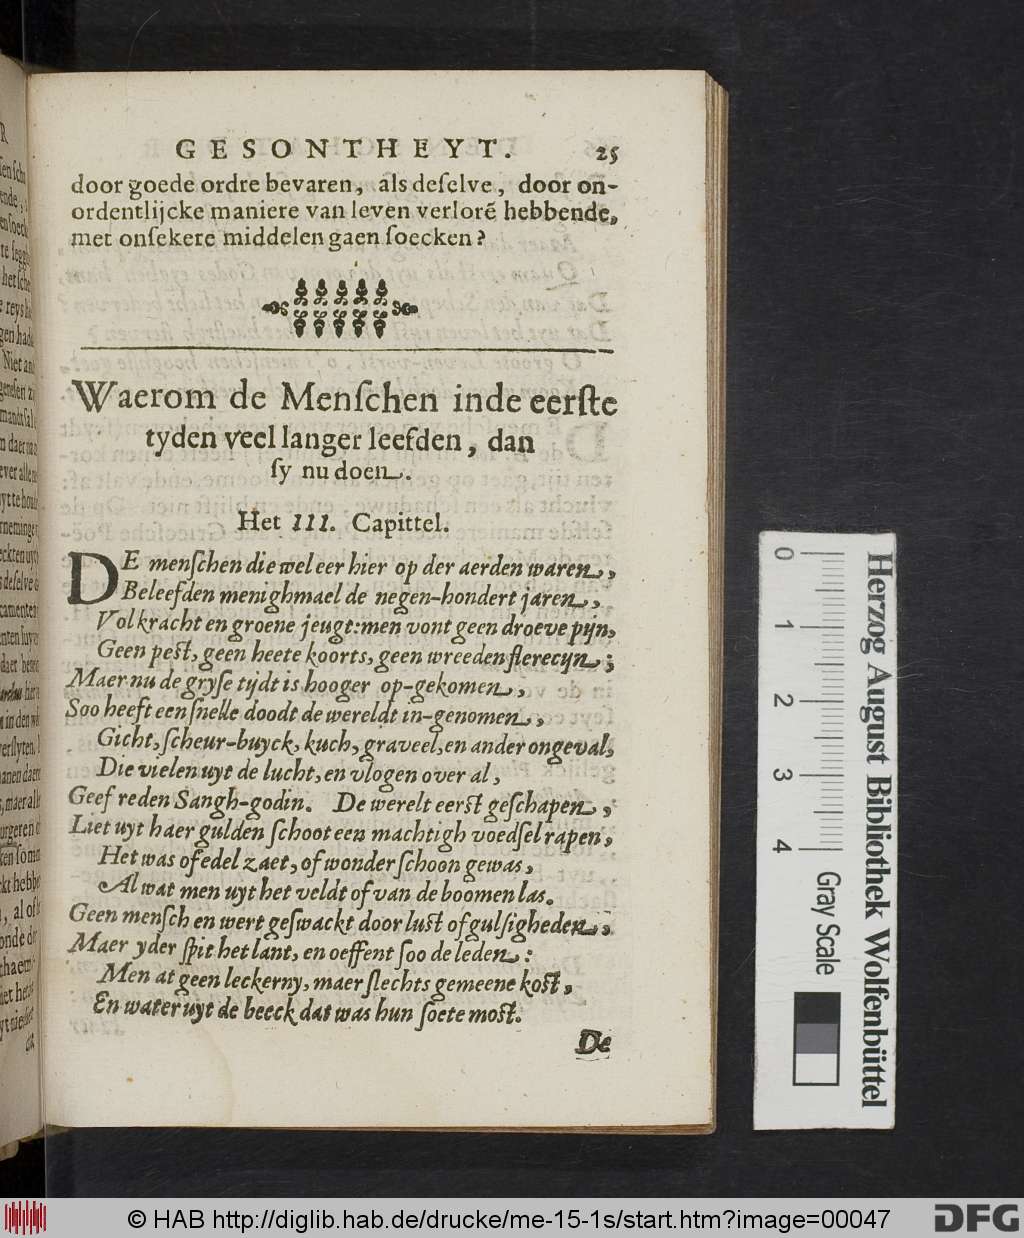 GESONTHEYT. 25
door goede ordre bevaren, als deſelve, door on-
ordentlijcke maniere van leven verlorē hebbende,
met onſekere middelen gaen ſoecken?
Waerom de Menſchen inde eerſte
tyden veel langer leefden, dan
ſy nu doen.
Het III. Capittel.
DE menſchen die wel eer hier op der aerden waren,
Beleefden menighmael de negen-hondert jaren,
Vol kracht en groene jeugt: men vont geen droeve pijn,
Geen peſt, geen heete koorts, geen wreeden flerecijn;
Maer nu de gryſe tijdt is hooger op-gekomen,
Soo heeft een ſnelle doodt de wereldt in-genomen,
Gicht, ſcheur-buyck, kuch, graveel, en ander ongeval,
Die vielen uyt de lucht, en vlogen over al,
Geef reden Sangh-godin. De werelt eerſt geſchapen,
Liet uyt haer gulden ſchoot een machtigh voedſel rapen,
Het was of edel zaet, of wonder ſchoon gewas,
Al wat men uyt het veldt of van de boomen las.
Geen menſch en wert geſwackt door luſt of gulſigheden,
Maer yder ſpit het lant, en oeffent ſoo de leden:
Men at geen leckerny, maer ſlechts gemeene koſt,
En water uyt de beeck dat was hun ſoete moſt.
De
0 1 2 3 4
Gray Scale
Herzog August Bibliothek Wolfenbüttel
© HAB http://diglib.hab.de/drucke/me-15-1s/start.htm?image=00047
DFG